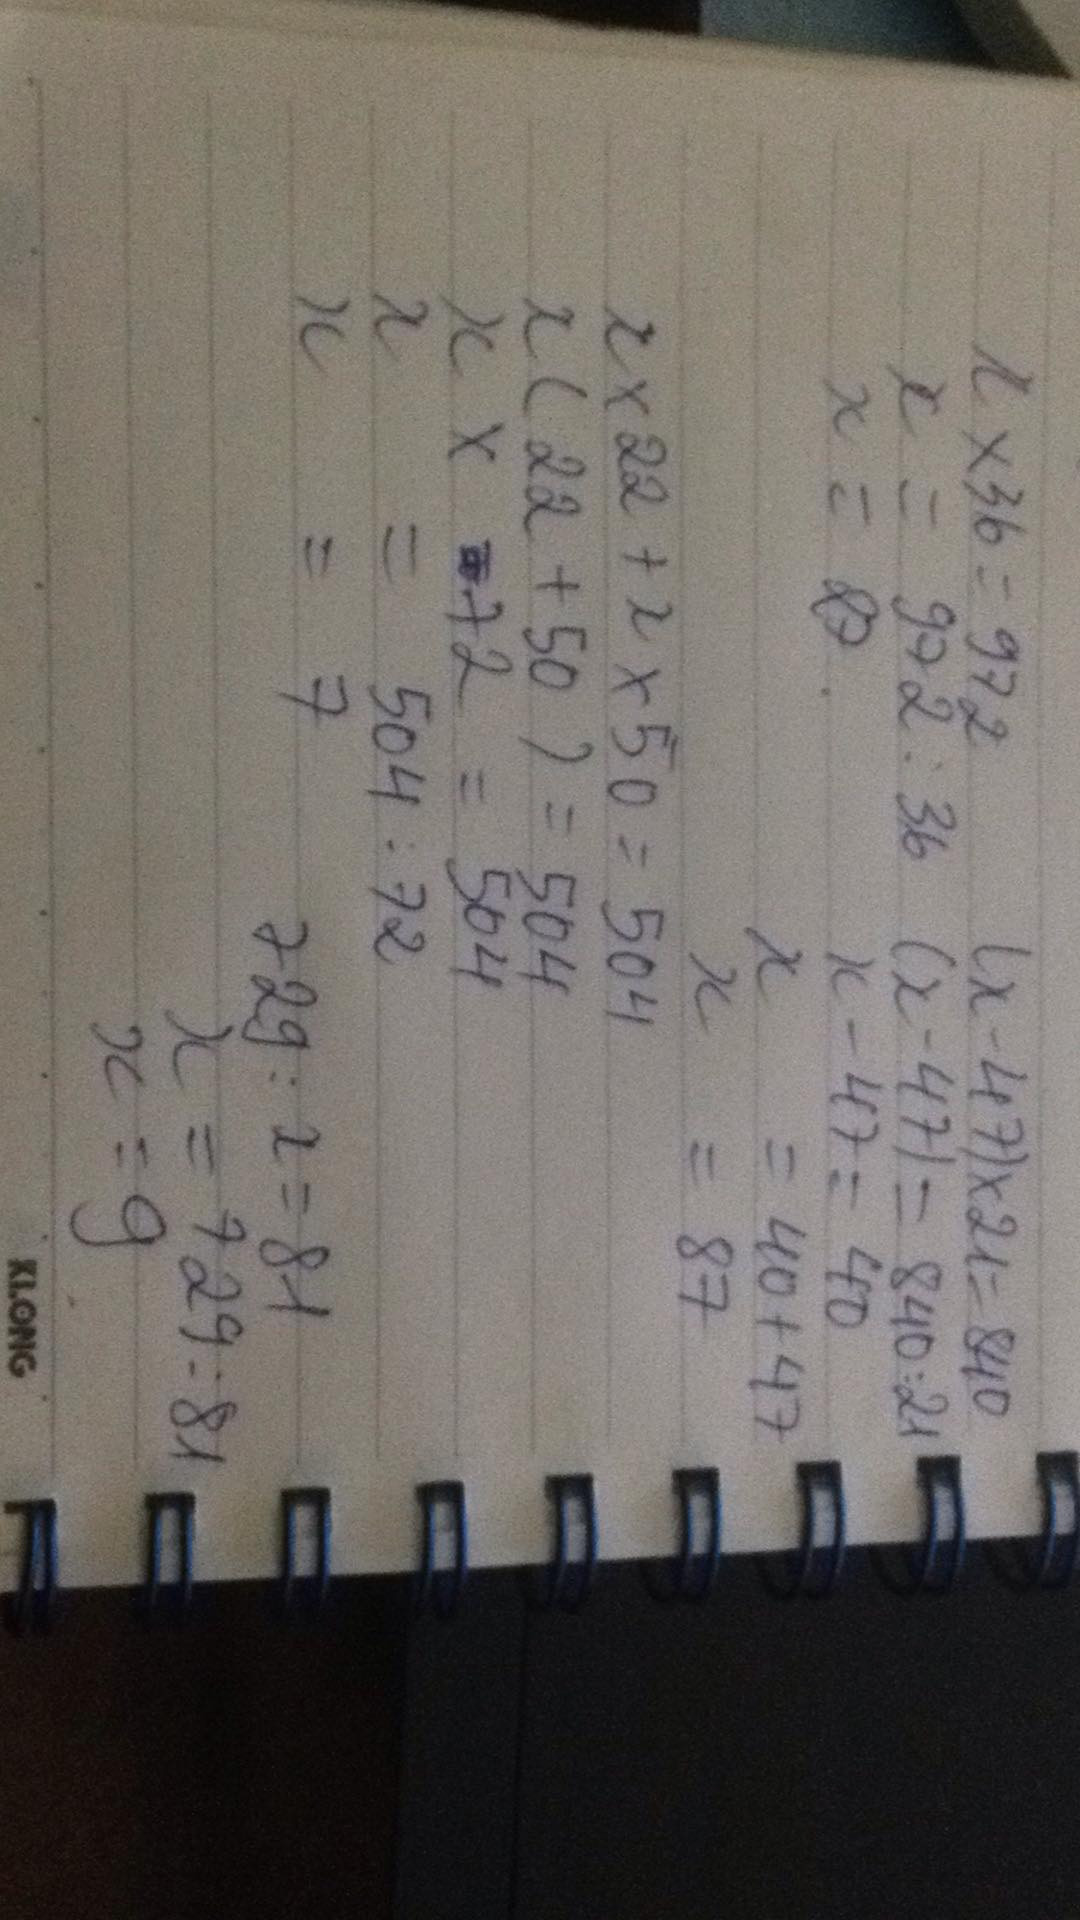 x × 36 = 972
x = 972 : 36
x = 27.
(x - 47) × 21 = 840
(x - 47) = 840 : 21
x - 47 = 40
x = 40 + 47
x = 87
x × 22 + x × 50 = 504
x ( 22 + 50 ) = 504
x × 72 = 504
x = 504 : 72
x = 7
729 : x = 81
x = 729 : 81
x = 9
KLONG